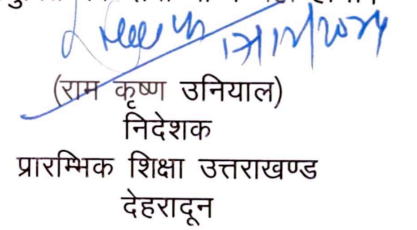 (राम कृष्ण उनियाल)
निदेशक
प्रारम्भिक शिक्षा उत्तराखण्ड
देहरादून